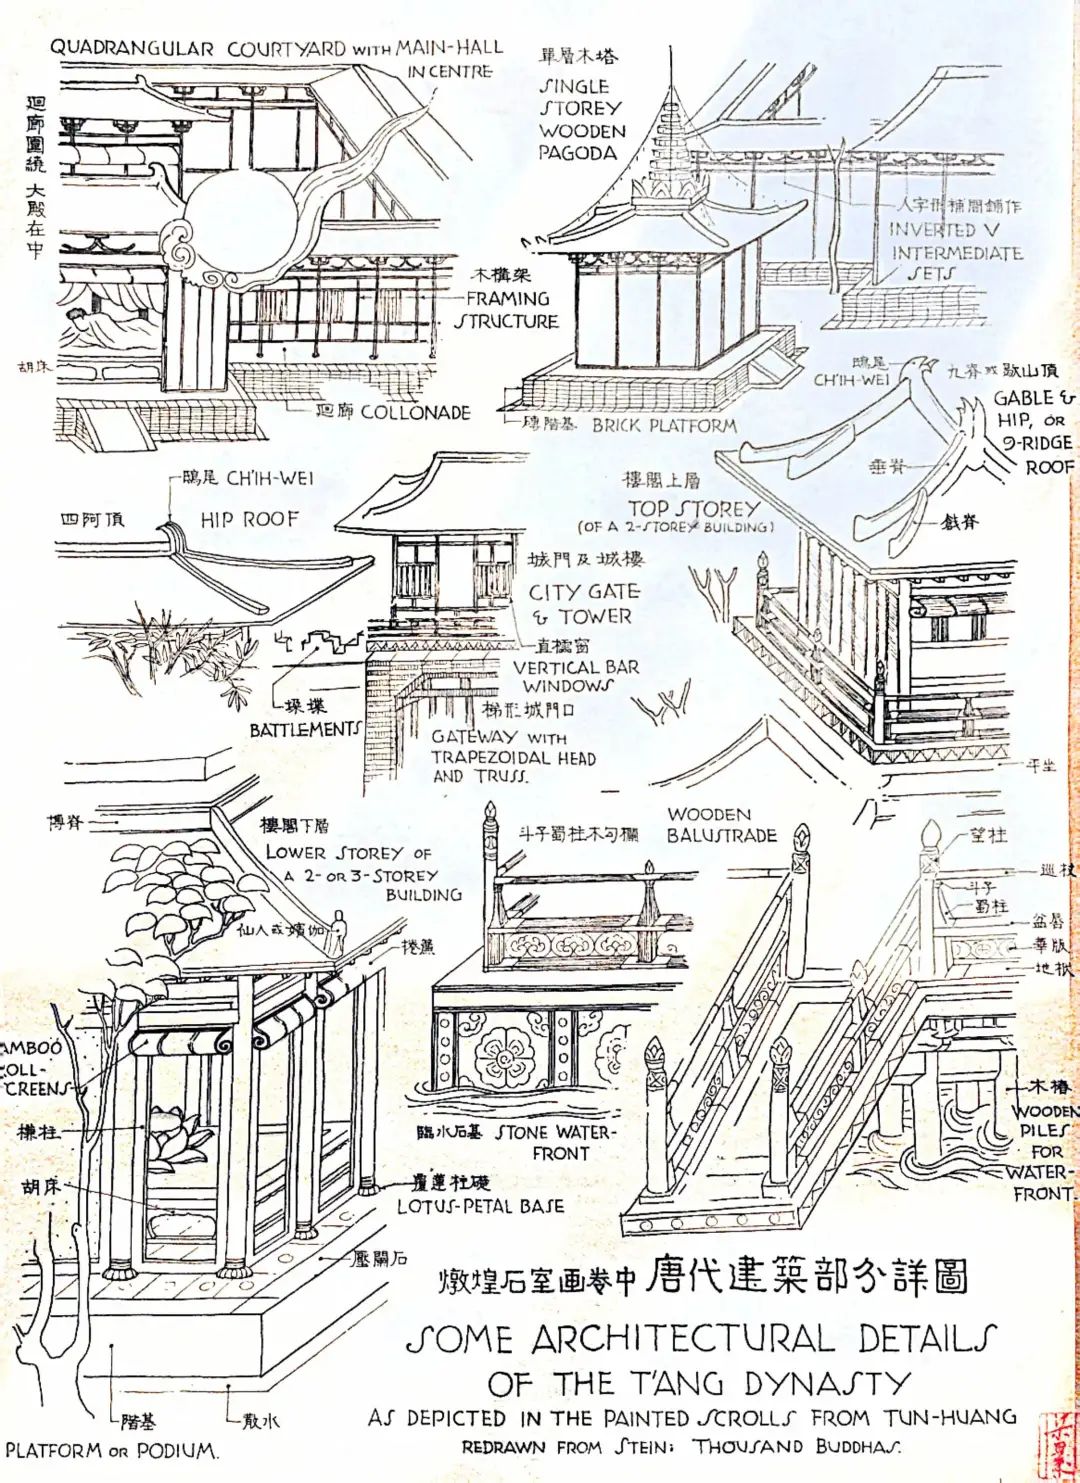 QUADRANGULAR COURTYARD WITH MAIN-HALL
IN CENTRE
迴廊圍繞大殿在中
單層木塔
SINGLE
STOREY
WOODEN
PAGODA
人字形補間鋪作
INVERTED V
INTERMEDIATE
SETS
木構架
FRAMING
STRUCTURE
胡床
迴廊 COLLONADE
磚階基 BRICK PLATFORM
鴟尾
CH'IH-WEI
九脊或歇山頂
GABLE &
HIP, OR
9-RIDGE
ROOF
垂脊
戧脊
鴟尾 CH'IH-WEI
四阿頂
HIP ROOF
樓閣上層
TOP STOREY
(OF A 2-STOREY BUILDING)
城門及城樓
CITY GATE
& TOWER
直櫺窗
VERTICAL BAR
WINDOWS
垛堞
BATTLEMENTS
梯形城門口
GATEWAY WITH
TRAPEZOIDAL HEAD
AND TRUSS.
平坐
博脊
樓閣下層
LOWER STOREY OF
A 2- OR 3-STOREY
BUILDING
仙人或嬪伽
捲簾
斗子蜀柱木勾欄
WOODEN
BALUSTRADE
望柱
巡杖
斗子
蜀柱
盆唇
華版
地栿
AMBOO
OLL-
CREENS
槏柱
胡床
臨水石基 STONE WATER-
FRONT
木樁
WOODEN
PILES
FOR
WATER-
FRONT.
覆蓮柱礎
LOTUS-PETAL BASE
壓闌石
階基
散水
PLATFORM OR PODIUM.
燉煌石室画卷中唐代建築部分詳圖
SOME ARCHITECTURAL DETAILS
OF THE T'ANG DYNASTY
AS DEPICTED IN THE PAINTED SCROLLS FROM TUN-HUANG
REDRAWN FROM STEIN: THOUSAND BUDDHAS.